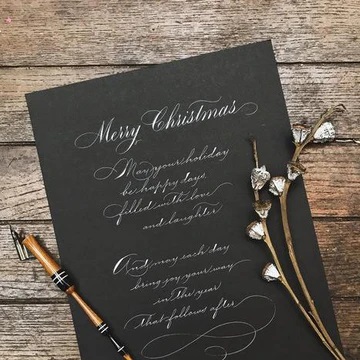 Merry Christmas
May your holiday
be happy days
filled with love
and laughter
And may each day
bring joy your way
in the year
that follows after